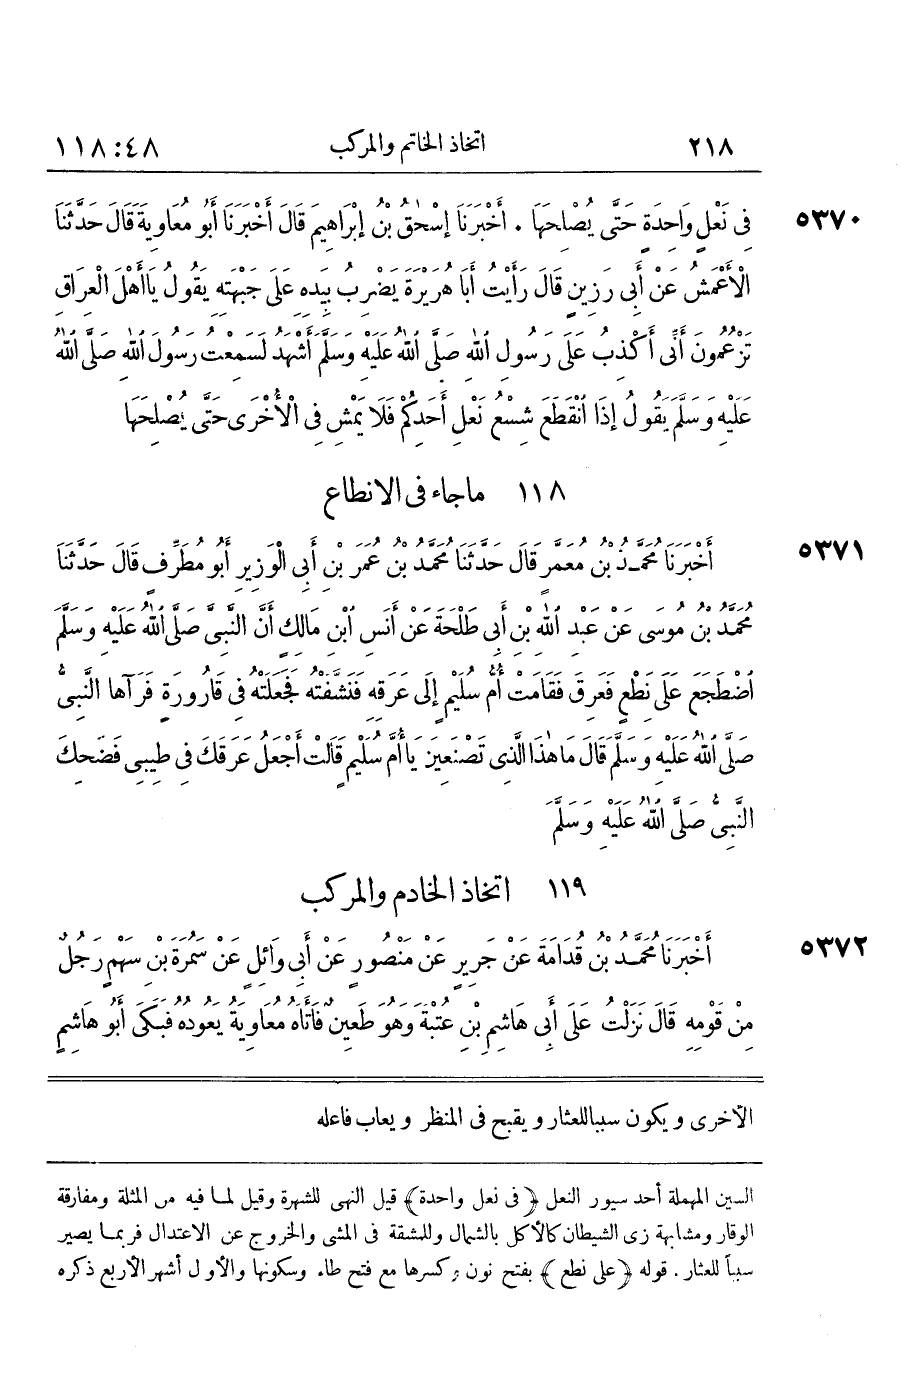 ٢١٨ اتخاذ الخاتم والمركب ٤٨:١١٨
٥٣٧٠ فِى نَعْلٍ وَاحِدَةٍ حَتَّى يُصْلِحَهَا . أَخْبَرَنَا إِسْحٰقُ بْنُ إِبْرَاهِيمَ قَالَ أَخْبَرَنَا أَبُو مُعَاوِيَةَ قَالَ حَدَّثَنَا
الْأَعْمَشُ عَنْ أَبِى رَزِينٍ قَالَ رَأَيْتُ أَبَا هُرَيْرَةَ يَضْرِبُ بِيَدِهِ عَلَى جَبْهَتِهِ يَقُولُ يَاأَهْلَ الْعِرَاقِ
تَزْعُمُونَ أَنِّى أَكْذِبُ عَلَى رَسُولِ اللهِ صَلَّى اللهُ عَلَيْهِ وَسَلَّمَ أَشْهَدُ لَسَمِعْتُ رَسُولَ اللهِ صَلَّى اللهُ
عَلَيْهِ وَسَلَّمَ يَقُولُ إِذَا انْقَطَعَ شِسْعُ نَعْلِ أَحَدِكُمْ فَلَا يَمْشِ فِى الْأُخْرَى حَتَّى يُصْلِحَهَا
١١٨ ماجاء فى الانطاع
٥٣٧١ أَخْبَرَنَا مُحَمَّدُ بْنُ مَعْمَرٍ قَالَ حَدَّثَنَا مُحَمَّدُ بْنُ عُمَرَ بْنِ أَبِى الْوَزِيرِ أَبُو مُطَرِّفٍ قَالَ حَدَّثَنَا
مُحَمَّدُ بْنُ مُوسَى عَنْ عَبْدِ اللهِ بْنِ أَبِى طَلْحَةَ عَنْ أَنَسِ ابْنِ مَالِكٍ أَنَّ النَّبِىَّ صَلَّى اللهُ عَلَيْهِ وَسَلَّمَ
اضْطَجَعَ عَلَى نَطْعٍ فَعَرِقَ فَقَامَتْ أُمُّ سُلَيْمٍ إِلَى عَرَقِهِ فَنَشَّفَتْهُ فَجَعَلَتْهُ فِى قَارُورَةٍ فَرَآهَا النَّبِىُّ
صَلَّى اللهُ عَلَيْهِ وَسَلَّمَ قَالَ مَا هٰذَا الَّذِى تَصْنَعِينَ يَا أُمَّ سُلَيْمٍ قَالَتْ أَجْعَلُ عَرَقَكَ فِى طِيبِى فَضَحِكَ
النَّبِىُّ صَلَّى اللهُ عَلَيْهِ وَسَلَّمَ
١١٩ اتخاذ الخادم والمركب
٥٣٧٢ أَخْبَرَنَا مُحَمَّدُ بْنُ قُدَامَةَ عَنْ جَرِيرٍ عَنْ مَنْصُورٍ عَنْ أَبِى وَائِلٍ عَنْ سَمُرَةَ بْنِ سَهْمٍ رَجُلٌ
مِنْ قَوْمِهِ قَالَ نَزَلْتُ عَلَى أَبِى هَاشِمِ بْنِ عُتْبَةَ وَهُوَ طَعِينٌ فَأَتَاهُ مُعَاوِيَةُ يَعُودُهُ فَبَكَى أَبُو هَاشِمٍ
الآخرى ويكون سبباللعثار ويقبح فى المنظر ويعاب فاعله
السين المهملة أحد سيور النعل ﴿فى نعل واحدة﴾ قيل النهى للشهرة وقيل لما فيه من المثلة ومفارقة
الوقار ومشابهة زى الشيطان كالأكل بالشمال وللمشقة فى المشى والخروج عن الاعتدال فربما يصير
سبباً للعثار . قوله ﴿على نطع﴾ بفتح نون وكسرها مع فتح طاء وسكونها والأول أشهر الأربع ذكره